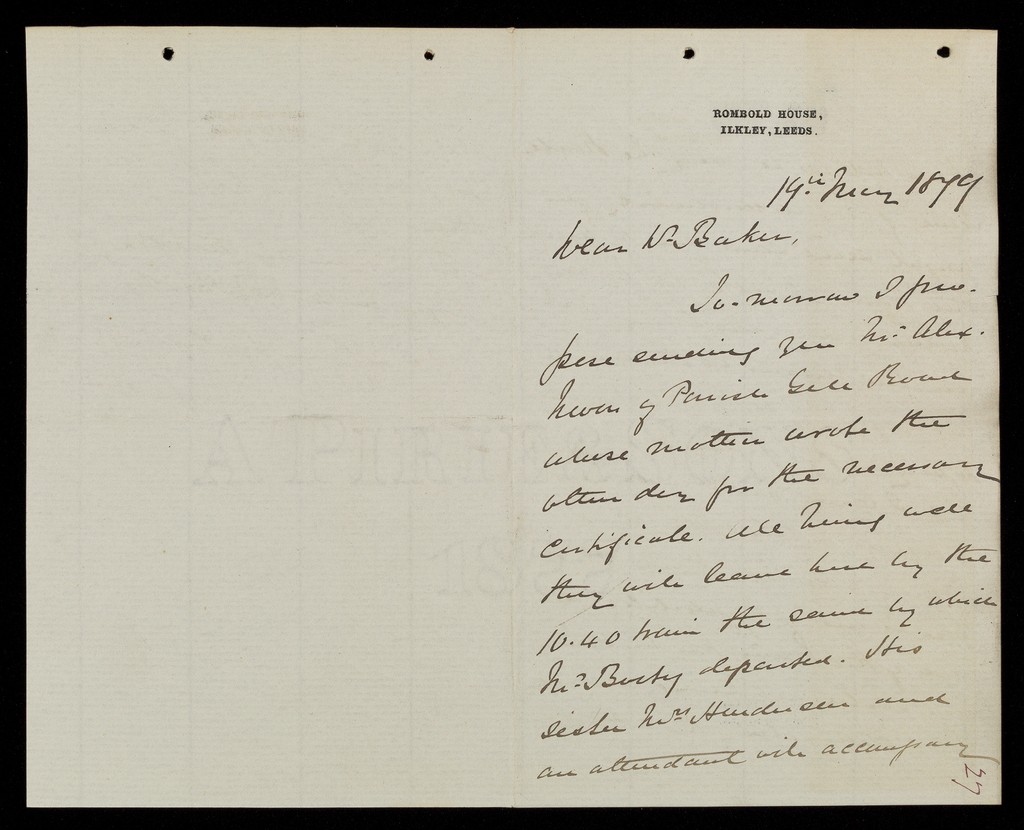 ROMBOLD HOUSE,
ILKLEY, LEEDS.
19th May 1879
Dear Dr Baker,
To-morrow I pro-
pose sending you Mr Alex.
of Parish Board
whose mother wrote the
other day for the necessary
certificate. All being well
they will leave here by the
10.40 train the same by which
Mr departed. His
sister Mrs Henderson and
an attendant will accompany
27